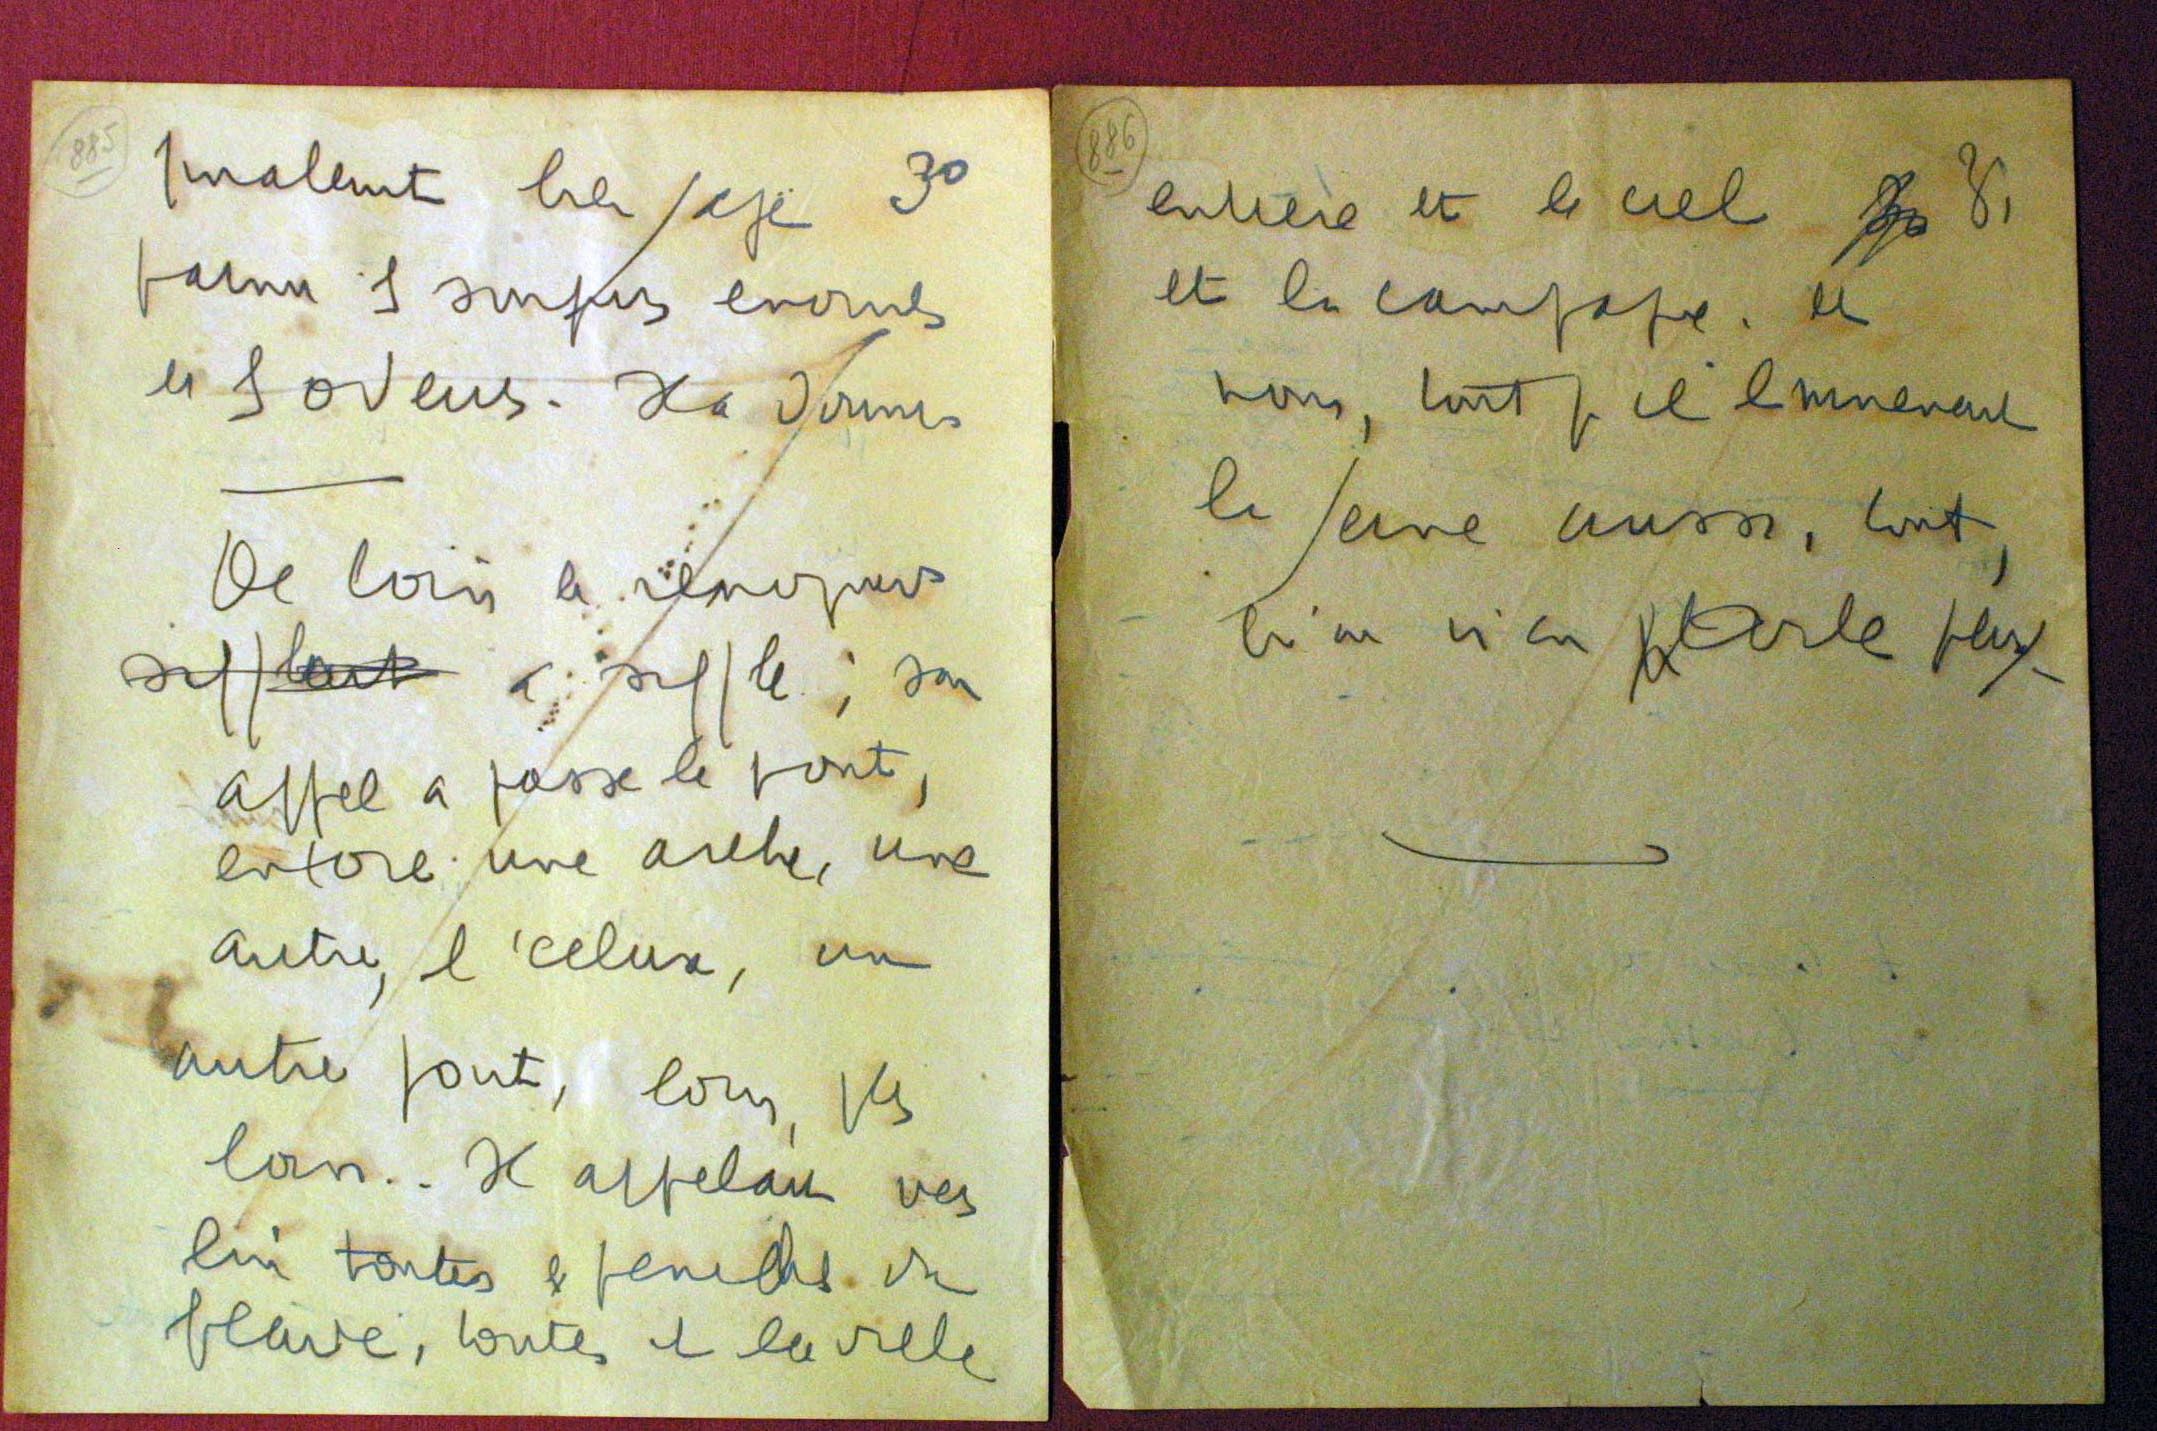 885
finalemt bien sage 30
parmi s songes enormes
et s odeurs. Il a dormi
De loin le remorqueur
sifflait a siffle ; son
appel a passe le pont,
encore une arche, une
autre, l'ecluse, un
autre pont, loin, pls
loin.. Il appelait vers
lui toutes peniches du
fleuve, toutes et la ville
886
entiere et le ciel 31
et la campagne. et
nous, tout il emmenait
la Seine aussi, tout,
qu'on n'en parle plus